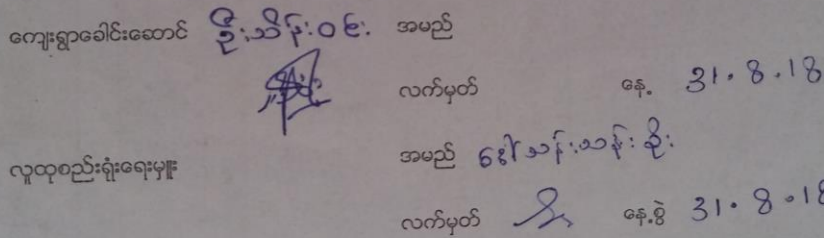 ကျေးရွာခေါင်းဆောင် ဦးသိန်းဝင်း အမည်
လက်မှတ် နေ့ 31.8.18
လူထုစည်းရုံးရေးမှူး အမည် ဒေါ်သန်းသန်းဦး
လက်မှတ် နေ့စွဲ 31.8.18